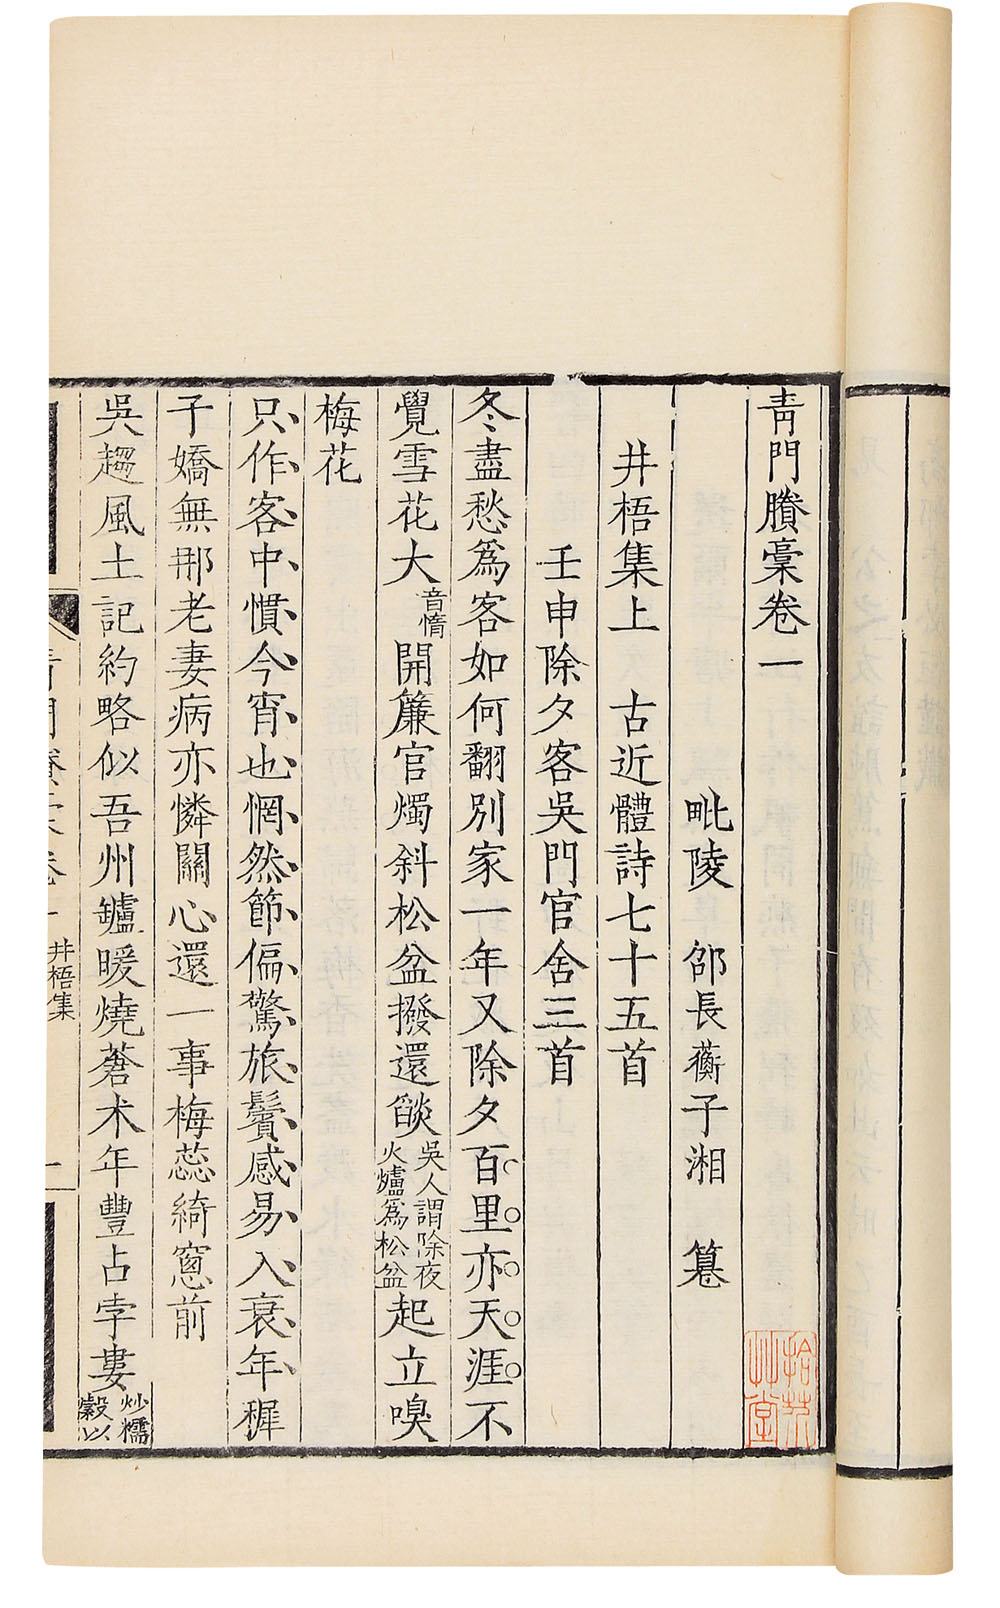 青門賸稾卷一
毗陵 邵長蘅子湘 篹
井梧集上 古近體詩七十五首
壬申除夕客吳門官舍三首
冬盡愁爲客如何翻別家一年又除夕百里亦天涯不
覺雪花大音惰開簾官燭斜松盆撥還燄吳人謂除夜火爐爲松盆起立嗅
梅花
只作客中慣今宵也惘然節偏驚旅鬢感易入衰年穉
子嬌無那老妻病亦憐關心還一事梅蕊綺窻前
吳趨風土記約略似吾州鑪暖燒蒼术年豐占孛婁炒糯穀以
井梧集
一
拾芥草堂